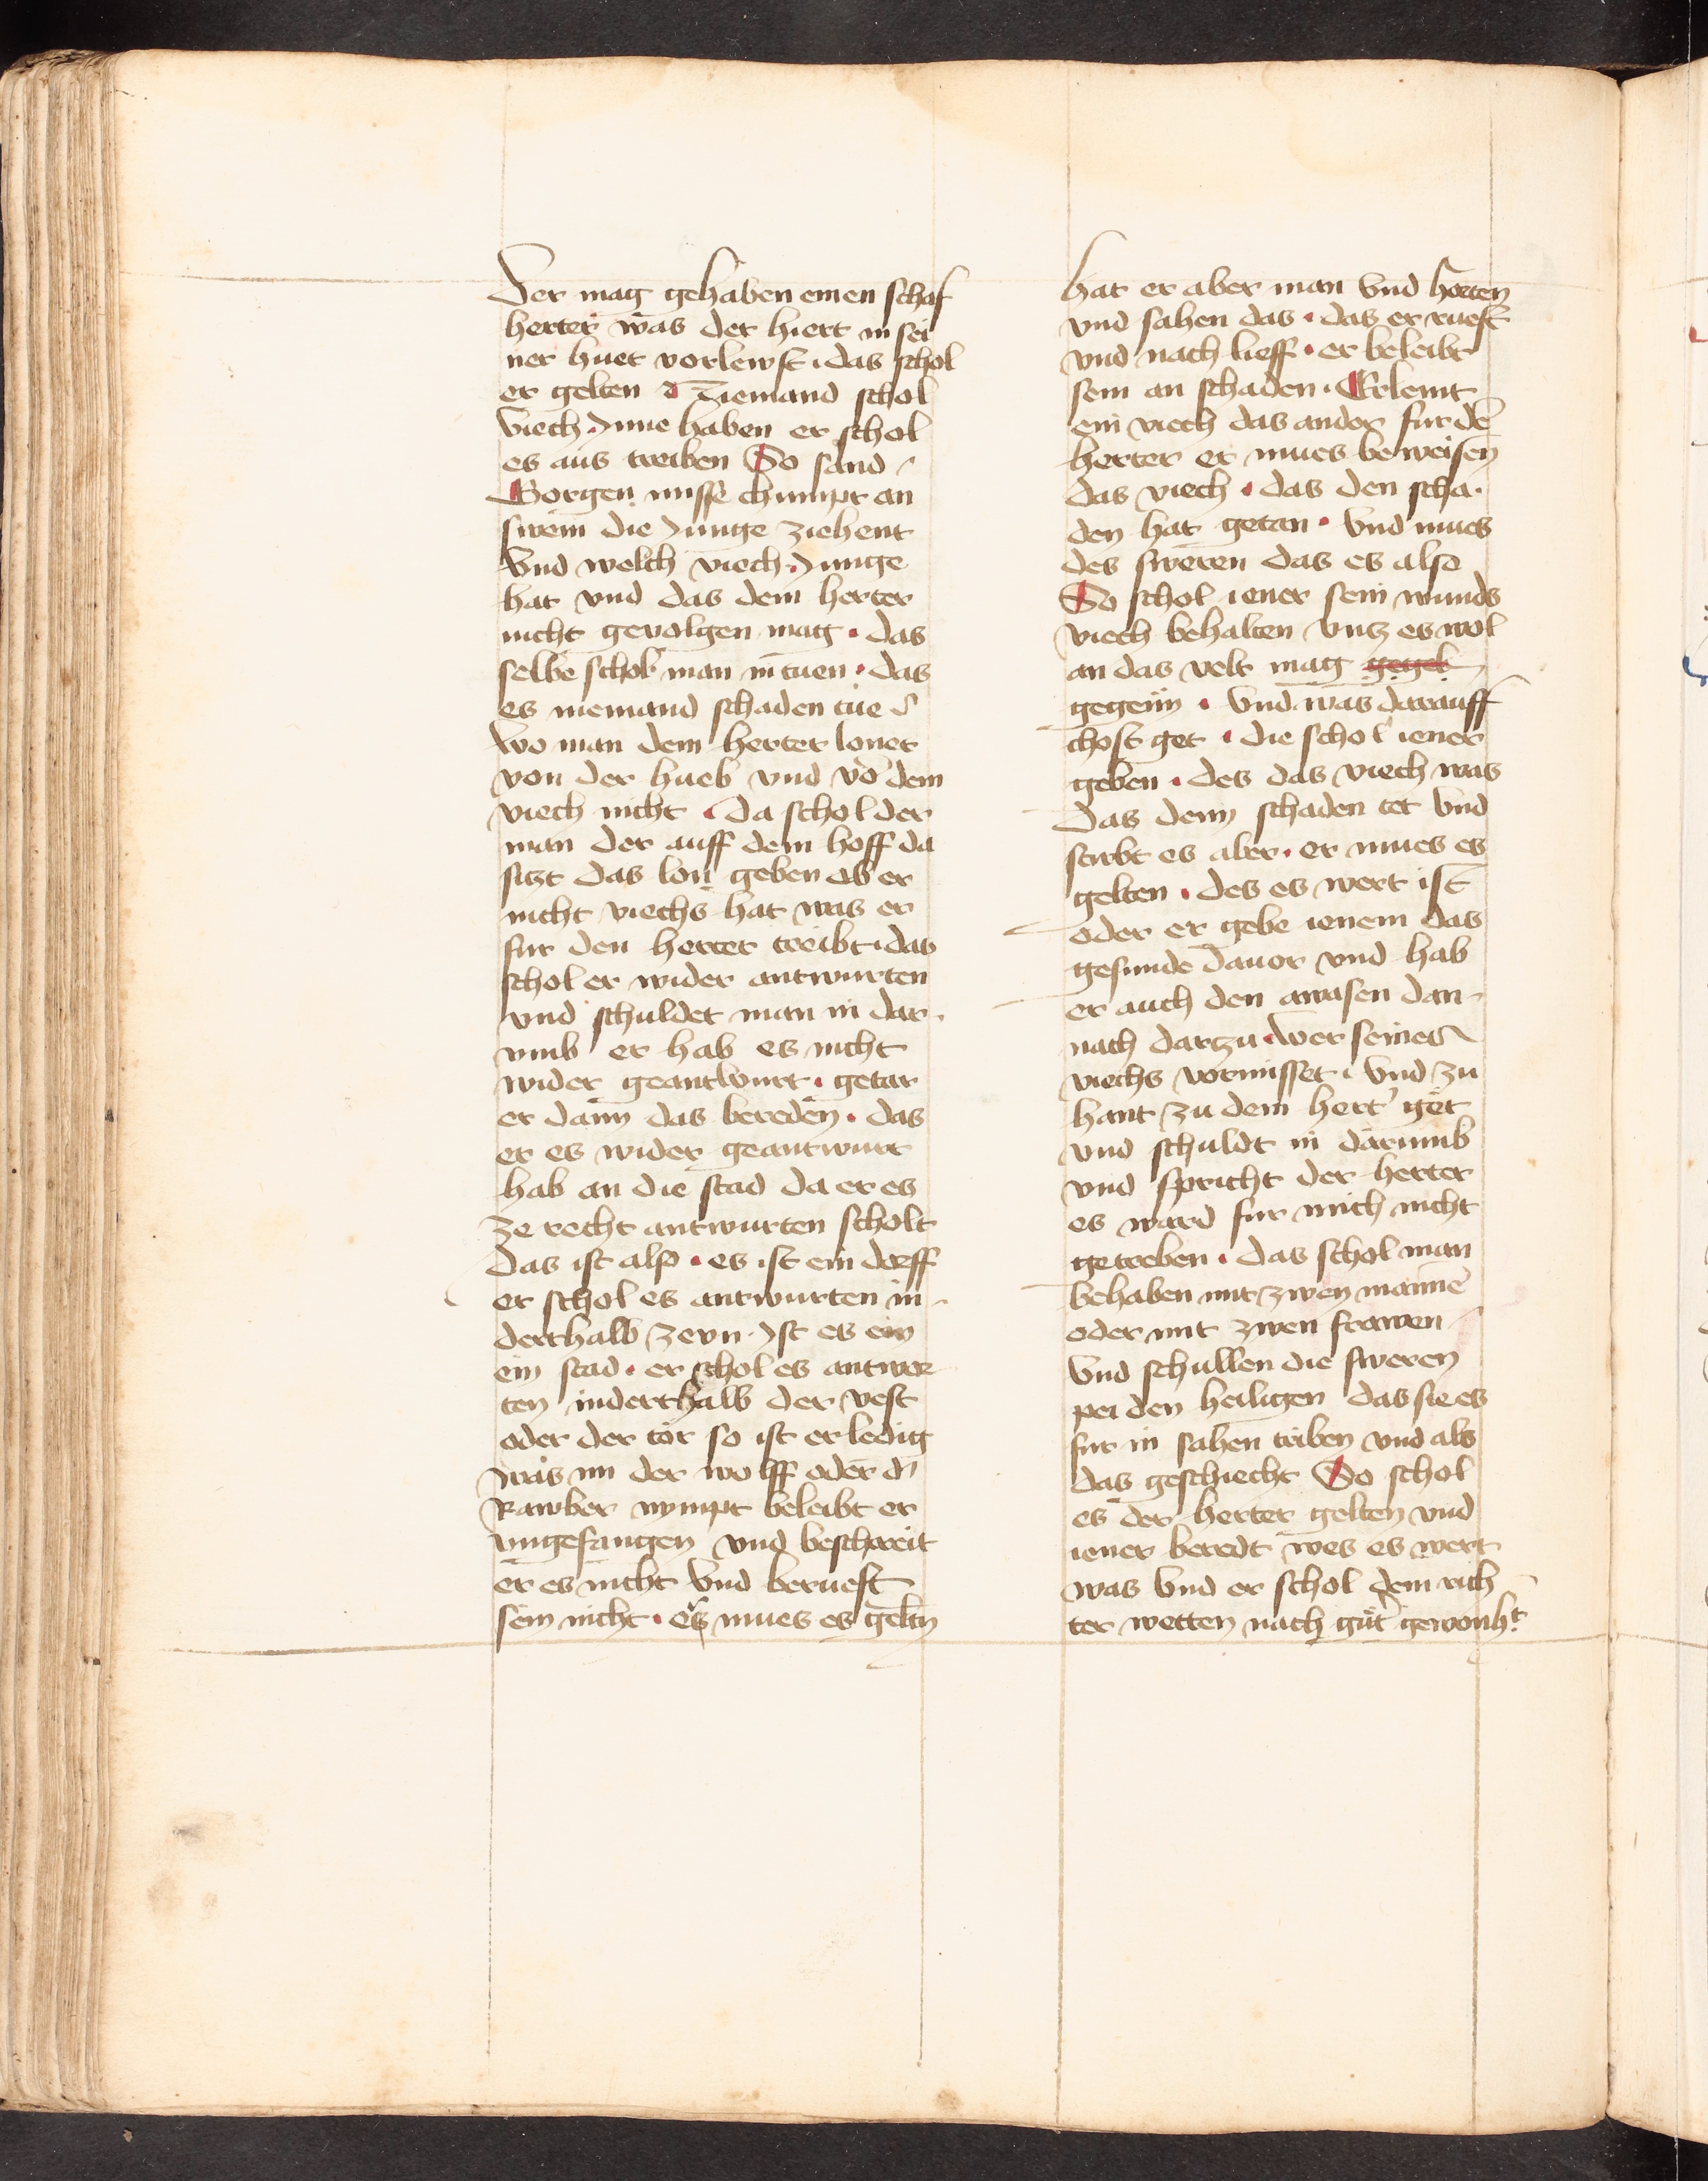 Der mag gehaben einen schaf
herter was der hiert in sei
ner huet vorlewst · das schol
er gelten Niemand schol
viech · Inne haben er schol
es aus treiben So sand
Gorgen misse chumpt an
swem die Junge ziehent
vnd welch viech · Junge
hat vnd das dem herter
nicht geuolgen mag · das
selbe schol man in tuen · das
es niemand schaden tüe
wo man dem herter lonet
von der hueb vnd vō dem
viech nicht · da schol der
man der auff dem hoff da
sitzt das lon geben ob er
nicht viechs hat was er
fur den herter treibt · das
schol er wider antwurten
vnd schuldet man in dar
vmb er hab es nicht
wider geantwurt · getar
er dann das bereden · das
er es wider geantwurt
hab an die stad da er es
ze recht antwurten scholt
Das ist also · es ist ein dorff
er schol es antwurten in
derthalb zevn · Ist es ein
ein stad · er schol es antwor
ten inderthalb der vest
oder der tör so ist er ledig
was im der wolff oder d'
Rawber nympt beleibt er
vngefangen vnd beschreit
er es nicht vnd berueft
sein nicht · er mues es geltn
hat er aber man vnd horten
vnd sahen das · das er rueft
vnd nach lieff · er beleibt
sein an schaden · Erlemt
ein viech das ander fur dē
herter er mues beweisen
das viech · das den scha
den hat getan · vnd mues
des sweren das es also
So schol iener sein wunds
viech behalten vntz es wol
an das velt mag geget
gegein · vnd was darauff
chost get · die schol iener
geben · des das viech was
Das dem schaden tet vnd
stirbt es aber · er mues es
gelten · des es wert ist
oder er gebe ienem das
gesunde dauor vnd hab
er auch den awasen dar
nach darzu · wer seines
viechs vormisset · vnd zu
hant zu dem hert' get
vnd schuldt in darumb
vnd spricht der herter
es ward fur mich nicht
getreben · das schol man
behaben mit zwen mannē
oder mit zwen frawen
vnd schullen die sweren
pei den heiligen das sie es
fur in sahen treiben vnd als
das geschiecht So schol
es der herter gelten vnd
iener beredt wes es wert
was vnd er schol dem rich
ter wetten nach güt' gewonh't